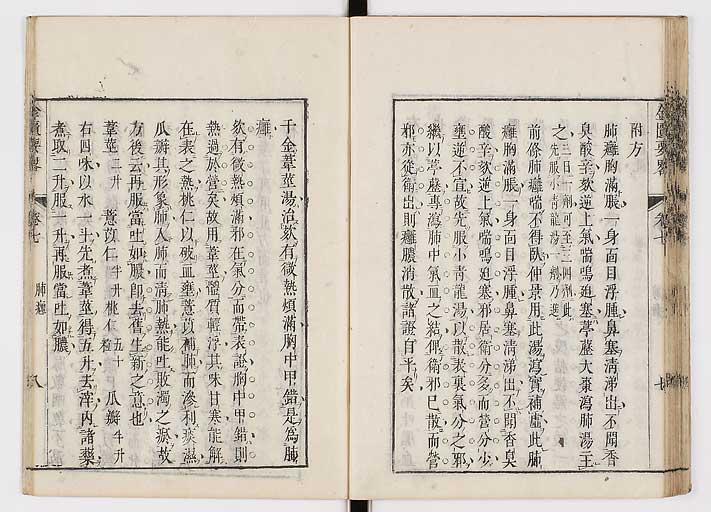 金匱要畧 卷七 七
附方
肺癰胸滿脹一身面目浮腫鼻塞清涕出不聞香
臭酸辛欬逆上氣喘鳴迫塞葶藶大棗瀉肺湯主
之三日一劑可至三四劑此先服小青龍湯一劑乃進
前條肺癰喘不得臥仲景用此湯瀉實補虛此肺
癰胸滿脹一身面目浮腫鼻塞清涕出不聞香臭
酸辛欬逆上氣喘鳴迫塞邪居衛分多而營分少
壅逆不宣故先服小青龍湯以散表裏氣分之邪
繼以葶藶專瀉肺中氣血之結俾衛邪已散而營
邪亦從衛出則癰膿消散諸證自平矣
千金葦莖湯治欬有微熱煩滿胸中甲錯是爲肺
癰
欬有微熱煩滿邪在氣分而帶表證胸中甲錯則
熱過於營矣故用葦莖體質輕浮其味甘寒能解
在表之熱桃仁以破血壅薏苡補肺而滲利痰濕
瓜瓣其形象肺入肺而清肺熱能吐敗濁之瘀故
方後云再服當吐如膿卽去舊生新之意也
葦莖二升 薏苡仁半升 桃仁五十粒 瓜瓣半升
右四味以水一斗先煮葦莖得五升去滓內諸藥
煮取二升服一升再服當吐如膿
金匱要畧 卷七 肺癰 八